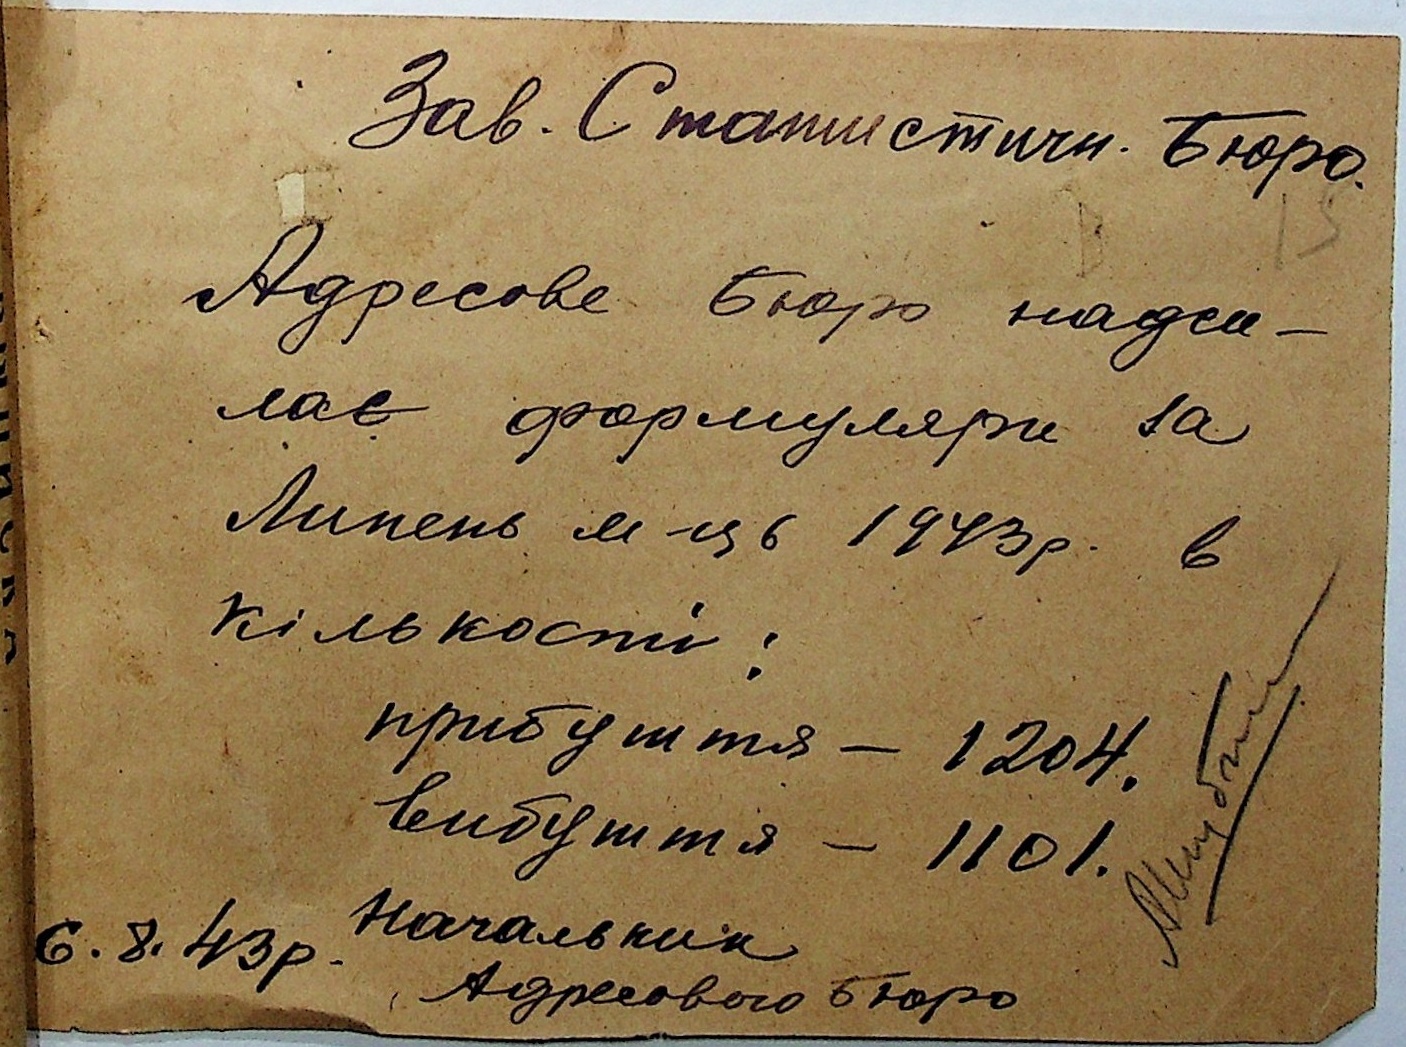 Зав. Статистичн. Бюро.
15
Адресове Бюро надси-
лає формуляри за
Липень м-ць 1943р. в
кількості:
прибуття — 1204.
вибуття — 1101.
6.8.43р. Начальник
Адресового Бюро